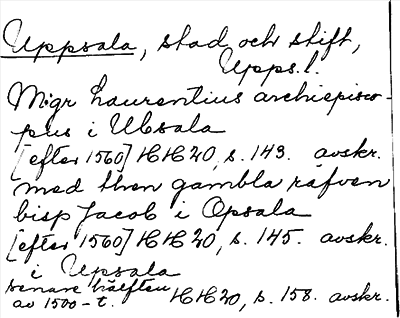 Uppsala, stad och stift,
Upps.l.
M:gr Laurentius archiepisco-
pus i Ubsala
[efter 1560] HH 20, s. 143. avskr.
med then gambla räfven
bisp Jacob i Opsala
[efter 1560] HH 20, s. 145. avskr.
i Upsala
senare hälften
av 1500-t. HH 20, s. 158. avskr.